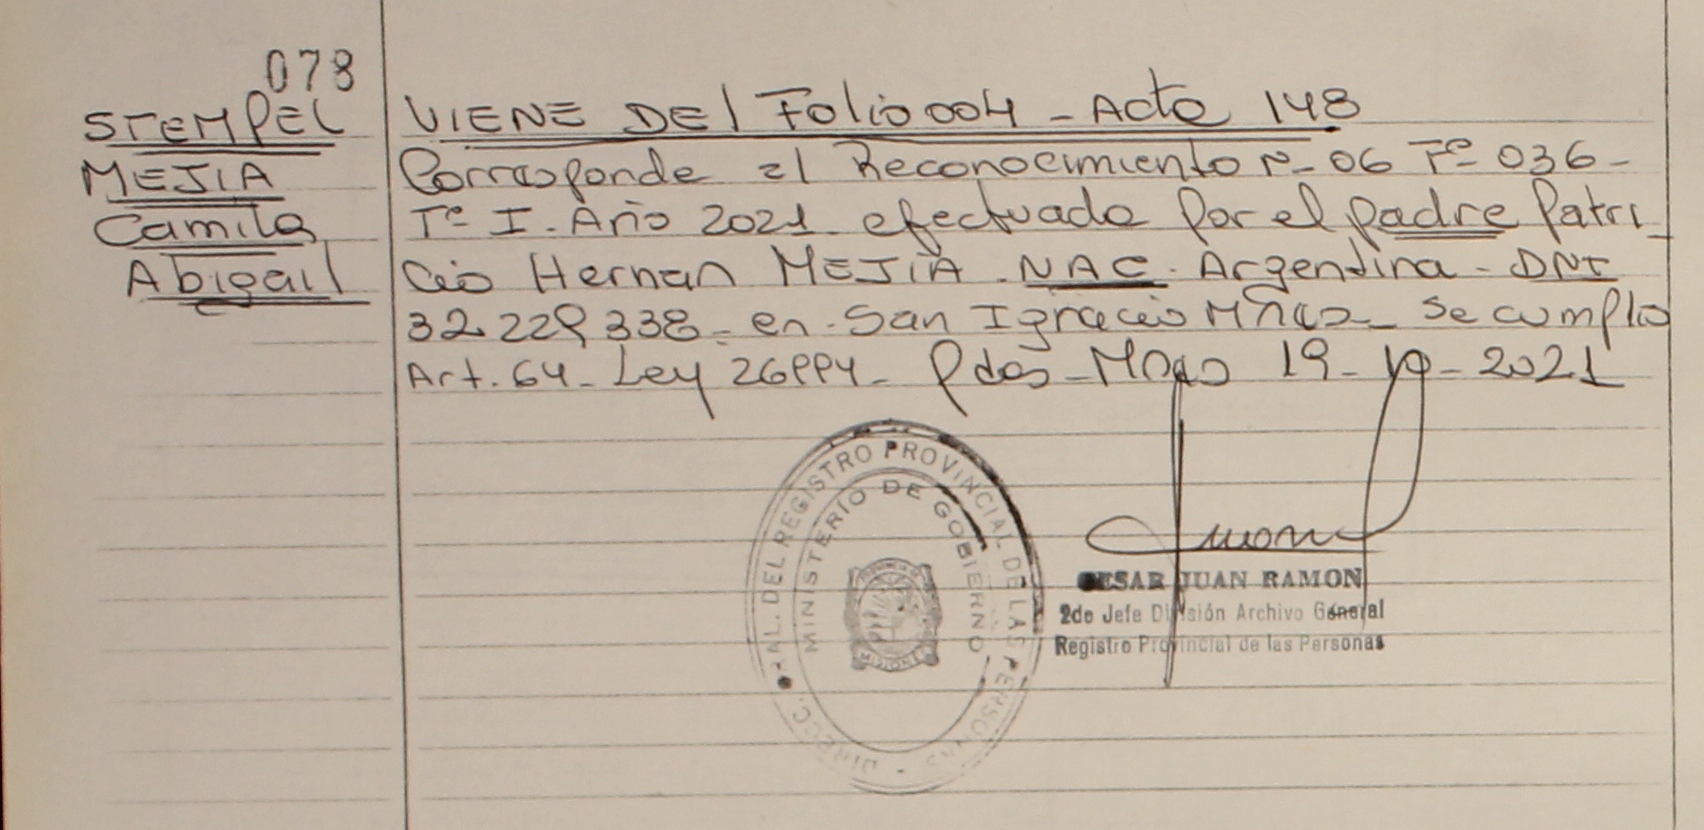 078
STEMPEL
MEJIA
Camila
Abigail
VIENE DEl Folio 004 - Acta 148
Corresponde al Reconocimiento Nº 06 Fº 036 -
Tº I. Año 2021 efectuada por el padre Patri
cio Hernan MEJIA. NAC. Argentina - DNI
32.229.338 - en San Ignacio Mnes - Se cumplio
Art. 64 - Ley 26994 - Pdas - Mnes 19 - 10 - 2021
DIRECC. GRAL. DEL REGISTRO PROVINCIAL DE LAS PERSONAS
MINISTERIO DE GOBIERNO
MISIONES
CESAR JUAN RAMON
2do Jefe División Archivo General
Registro Provincial de las Personas